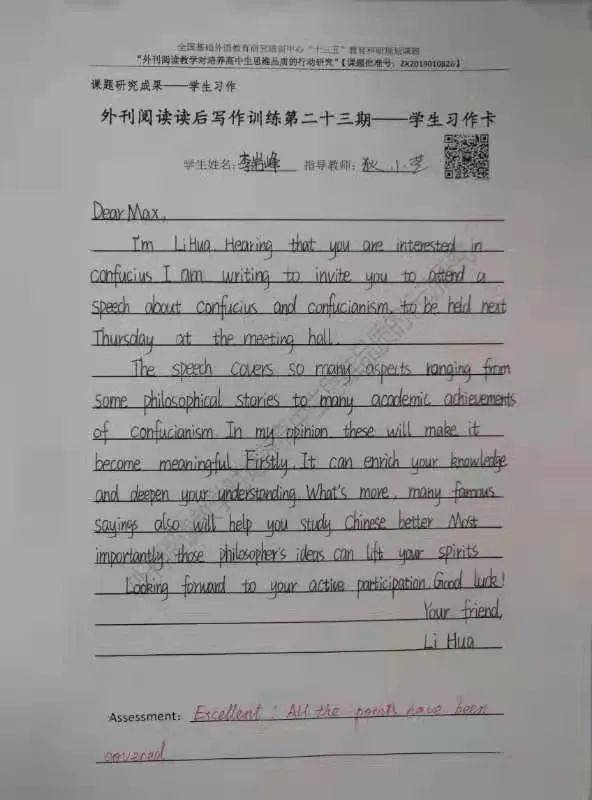 全国基础外语教育研究培训中心“十三五”教育科研规划课题
“外刊阅读教学对培养高中生思维品质的行动研究”【课题批准号：ZX2019010826】
课题研究成果——学生习作
外刊阅读读后写作训练第二十三期——学生习作卡
学生姓名: 李尚峰 指导教师: 狄小芝
Dear Max,
I'm Li Hua. Hearing that you are interested in
confucius I am writing to invite you to attend a
speech about confucius and confucianism, to be held next
Thursday at the meeting hall.
The speech covers so many asperts ranging from
some philosophical stories to many academic achievements
of confucianism. In my opinion these will make it
become meaningful. Firstly, It can enrich your knowledge
and deepen your understanding. What's more, many famous
sayings also will help you study Chinese better Most
importantly, those philosopher's ideas can lift your spirits
Looking forward to your active participation. Good luck!
Your friend,
Li Hua
Assessment: Excellent! All the points have been
covered